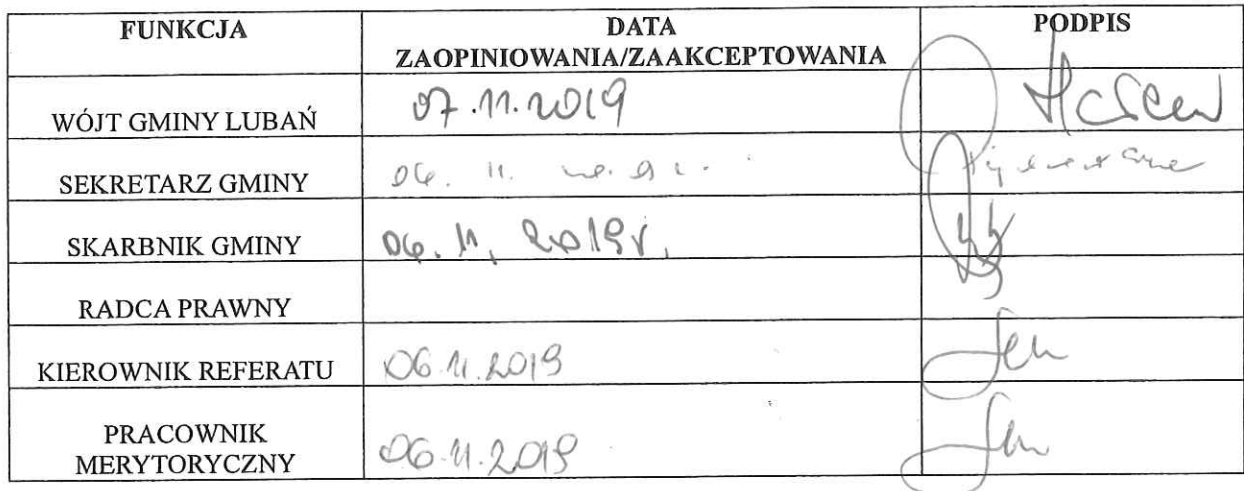 FUNKCJA
DATA
ZAOPINIOWANIA/ZAAKCEPTOWANIA
PODPIS
WÓJT GMINY LUBAŃ
07.11.2019
SEKRETARZ GMINY
06. 11.
SKARBNIK GMINY
06. 11, 2019r.
RADCA PRAWNY
KIEROWNIK REFERATU
06.11.2019
PRACOWNIK
MERYTORYCZNY
06.11.2019